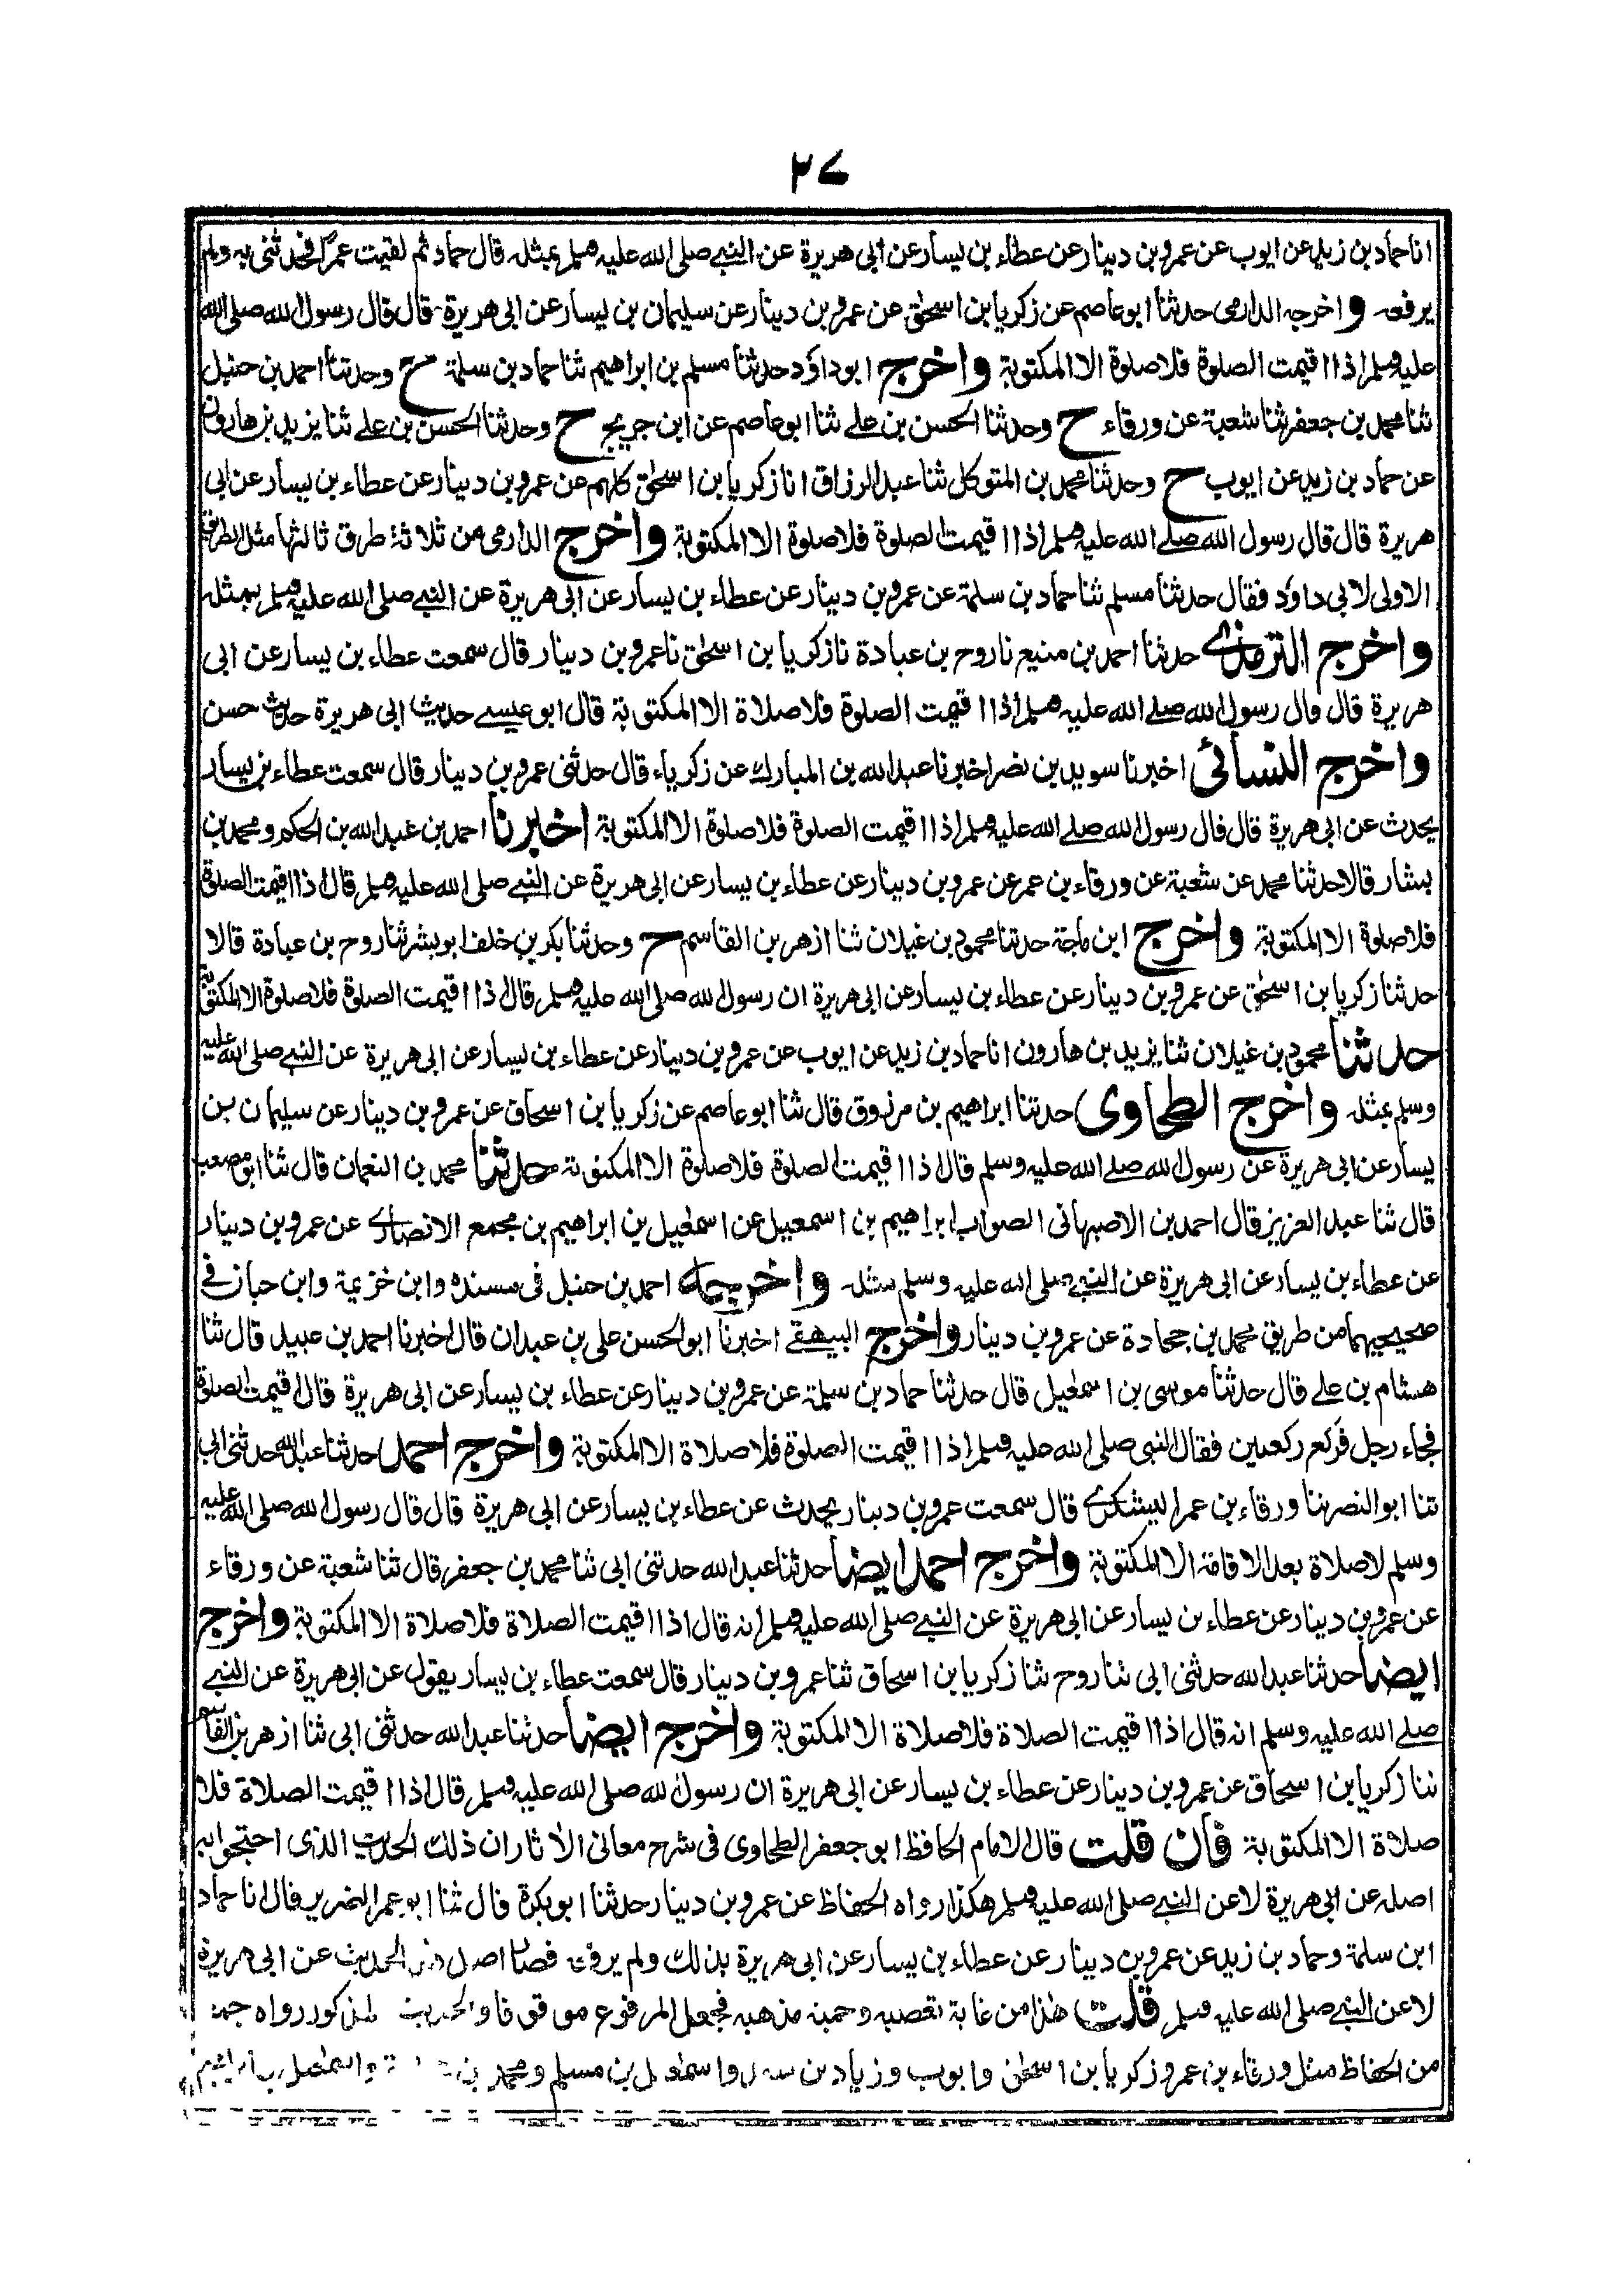 ٢٧
انا حماد بن زيد عن ايوب عن عمرو بن دينار عن عطاء بن يسار عن ابى هريرة عن النبي صلى الله عليه وسلم بمثله قال حماد ثم لقيت عمرا فحدثنى به ولم
يرفعه واخرجه الدارمى حدثنا ابو عاصم عن زكريا بن اسحٰق عن عمرو بن دينار عن سليمان بن يسار عن ابى هريرة قال قال رسول الله صلى الله
عليه وسلم اذا اقيمت الصلوة فلا صلوة الا المكتوبة واخرج ابو داؤد حدثنا مسلم بن ابراهيم ثنا حماد بن سلمة ح وحدثنا احمد بن حنبل
ثنا محمد بن جعفر ثنا شعبة عن ورقاء ح وحدثنا الحسن بن علي ثنا ابو عاصم عن ابن جريج ح وحدثنا الحسن بن علي ثنا يزيد بن هارون
عن حماد بن زيد عن ايوب ح وحدثنا محمد بن المتوكل ثنا عبد الرزاق انا زكريا بن اسحٰق كلهم عن عمرو بن دينار عن عطاء بن يسار عن ابى
هريرة قال قال رسول الله صلے الله عليه وسلم اذا اقيمت الصلوة فلا صلوة الا المكتوبة واخرج الدارمى من ثلاثة طرق ثالثها مثل الطريق
الاولى لابى داؤد فقال حدثنا مسلم ثنا حماد بن سلمة عن عمرو بن دينار عن عطاء بن يسار عن ابى هريرة عن النبي صلى الله عليه وسلم بمثله
واخرج الترمذے حدثنا احمد بن منيع نا روح بن عبادة نا زكريا بن اسحٰق نا عمرو بن دينار قال سمعت عطاء بن يسار عن ابى
هريرة قال قال رسول الله صلے الله عليه وسلم اذا اقيمت الصلوة فلا صلاة الا المكتوبة قال ابو عيسے حديث ابى هريرة حديث حسن
واخرج النسائى اخبرنا سويد بن نصر اخبرنا عبد الله بن المبارك عن زكرياء قال حدثنى عمرو بن دينار قال سمعت عطاء بن يسار
يحدث عن ابى هريرة قال قال رسول الله صلے الله عليه وسلم اذا اقيمت الصلوة فلا صلوة الا المكتوبة اخبرنا احمد بن عبد الله بن الحكم ومحمد بن
بشار قالا حدثنا محمد عن شعبة عن ورقاء بن عمر عن عمرو بن دينار عن عطاء بن يسار عن ابى هريرة عن النبي صلى الله عليه وسلم قال اذا اقيمت الصلوة
فلا صلوة الا المكتوبة واخرج ابن ماجة حدثنا محمود بن غيلان ثنا ازهر بن القاسم ح وحدثنا بكر بن خلف ابو بشر ثنا روح بن عبادة قالا
حدثنا زكريا بن اسحٰق عن عمرو بن دينار عن عطاء بن يسار عن ابى هريرة ان رسول الله صلى الله عليه وسلم قال اذا اقيمت الصلوة فلا صلوة الا المكتوبة
حدثنا محمود بن غيلان ثنا يزيد بن هارون انا حماد بن زيد عن ايوب عن عمرو بن دينار عن عطاء بن يسار عن ابى هريرة عن النبي صلى الله عليه
وسلم بمثله واخرج الطحاوى حدثنا ابراهيم بن مرزوق قال ثنا ابو عاصم عن زكريا بن اسحاق عن عمرو بن دينار عن سليمان بن
يسار عن ابى هريرة عن رسول الله صلے الله عليه وسلم قال اذا اقيمت الصلوة فلا صلوة الا المكتوبة حدثنا محمد بن النعمان قال ثنا ابو مصعب
قال ثنا عبد العزيز قال احمد بن الاصبهانى الصواب ابراهيم بن اسمعيل عن اسمٰعيل بن ابراهيم بن مجمع الانصارے عن عمرو بن دينار
عن عطاء بن يسار عن ابى هريرة عن النبي صلى الله عليه وسلم مثله واخرجه احمد بن حنبل فى مسنده وابن خزيمة وابن حبان فے
صحيحيهما من طريق محمد بن جحادة عن عمرو بن دينار واخرج البيهقے اخبرنا ابو الحسن على بن عبدان قال اخبرنا احمد بن عبيد قال ثنا
هشام بن علے قال حدثنا موسى بن اسمٰعيل قال حدثنا حماد بن سلمة عن عمرو بن دينار عن عطاء بن يسار عن ابى هريرة قال اقيمت الصلوة
فجاء رجل فركع ركعتين فقال النبى صلى الله عليه وسلم اذا اقيمت الصلوة فلا صلاة الا المكتوبة واخرج احمد حدثنا عبد الله حدثنى ابى
ثنا ابو النضر ثنا ورقاء بن عمر اليشكرے قال سمعت عمرو بن دينار يحدث عن عطاء بن يسار عن ابى هريرة قال قال رسول الله صلى الله عليه
وسلم لا صلاة بعد الاقامة الا المكتوبة واخرج احمد ايضا حدثنا عبد الله حدثنى ابى ثنا محمد بن جعفر قال ثنا شعبة عن ورقاء
عن عمرو بن دينار عن عطاء بن يسار عن ابى هريرة عن النبي صلى الله عليه وسلم انه قال اذا اقيمت الصلاة فلا صلاة الا المكتوبة واخرج
ايضا حدثنا عبد الله حدثنى ابى ثنا روح ثنا زكريا بن اسحاق ثنا عمرو بن دينار قال سمعت عطاء بن يسار يقول عن ابى هريرة عن النبي
صلے الله عليه وسلم انه قال اذا اقيمت الصلاة فلا صلاة الا المكتوبة واخرج ايضا حدثنا عبد الله حدثنى ابى ثنا ازهر بن القاسم
ثنا زكريا بن اسحاق عن عمرو بن دينار عن عطاء بن يسار عن ابى هريرة ان رسول الله صلى الله عليه وسلم قال اذا اقيمت الصلاة فلا
صلاة الا المكتوبة فان قلت قال الامام الحافظ ابو جعفر الطحاوى فى شرح معانى الاٰثار ان ذلك الحديث الذى احتجوا به
اصله عن ابى هريرة لا عن النبي صلى الله عليه وسلم هكذا رواه الحفاظ عن عمرو بن دينار حدثنا ابو بكرة قال ثنا ابو عمر الضرير قال انا حماد
ابن سلمة وحماد بن زيد عن عمرو بن دينار عن عطاء بن يسار عن ابى هريرة بذلك ولم يرفعه فصار اصل هذا الحديث عن ابى هريرة
لا عن النبي صلى الله عليه وسلم قلت هذا من غاية تعصبه وحمية مذهبه فجعل المرفوع موقوفا والحديث المذكور رواه جمة
من الحفاظ مثل ورقاء بن عمرو زكريا بن اسحٰق وايوب وزياد بن سعد واسمٰعيل بن مسلم ومحمد بن واسمٰعيل بن ابراهيم